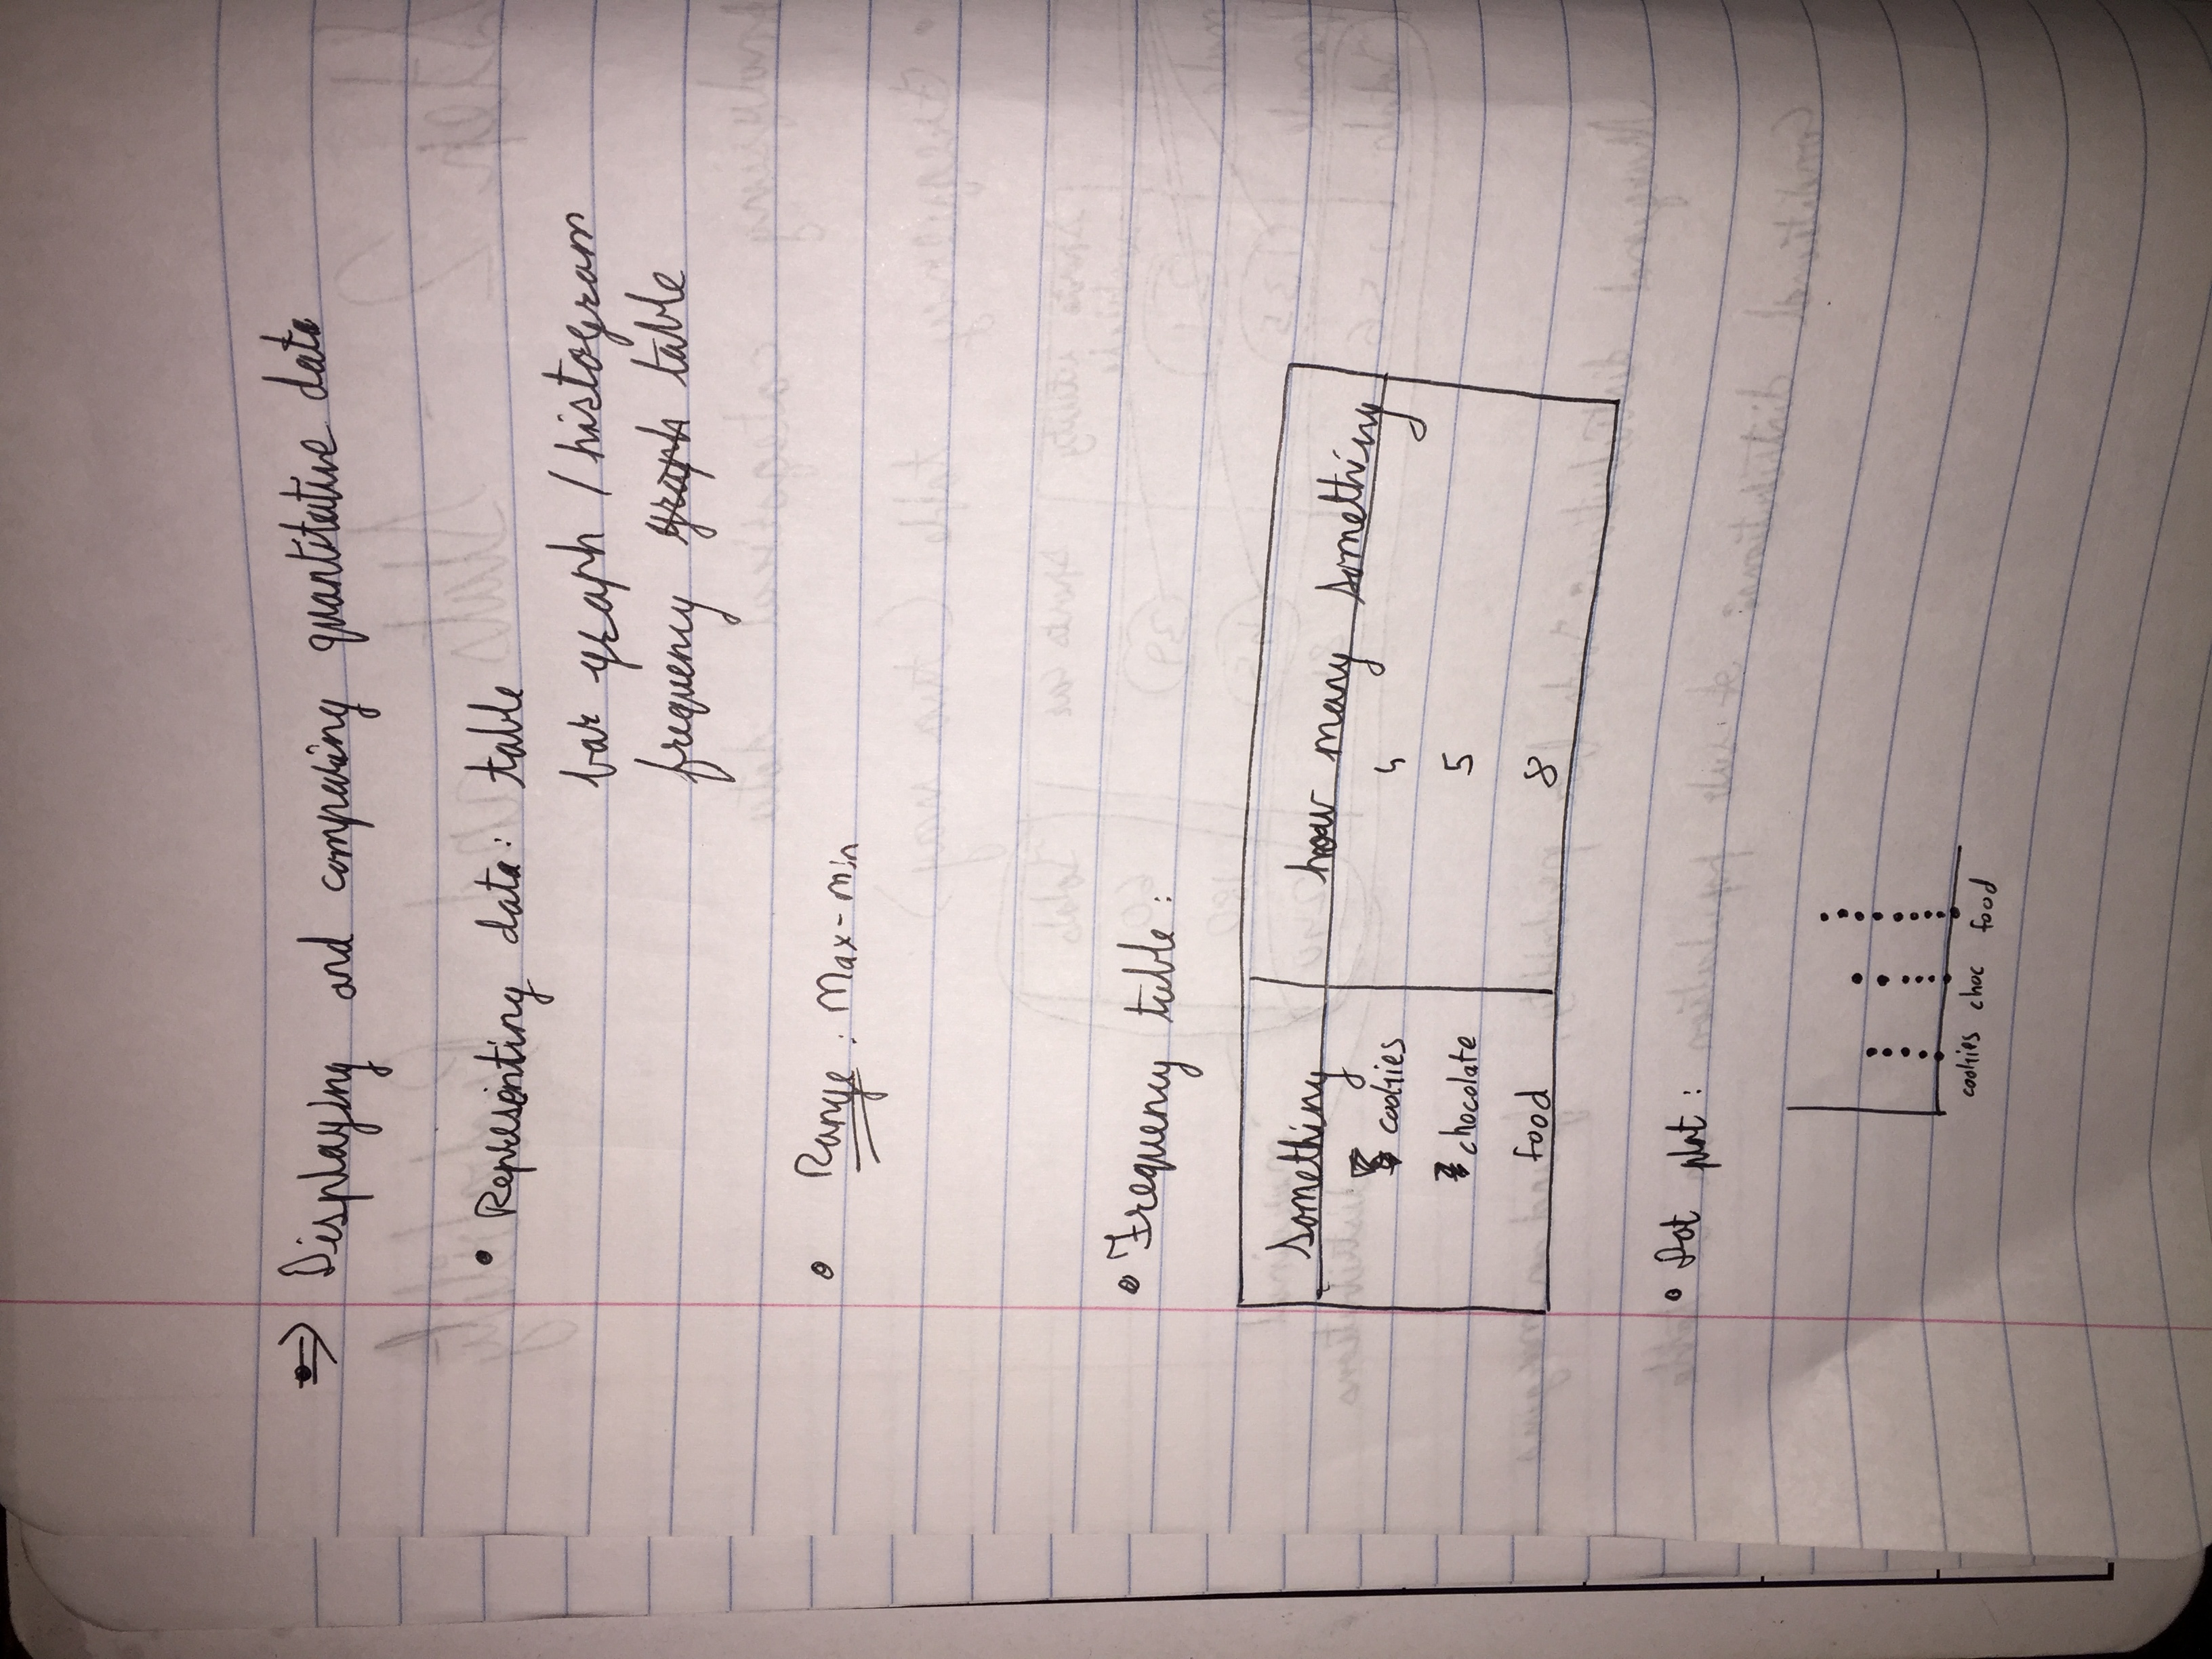 ⇒ Displaying and comparing quantitative data
• Representing data: table
bar graph / histogram
frequency graph table
• Range: Max-min
• Frequency table:
something how many something
cookies 4
chocolate 5
food 8
• Dot plot:
cookies choc food